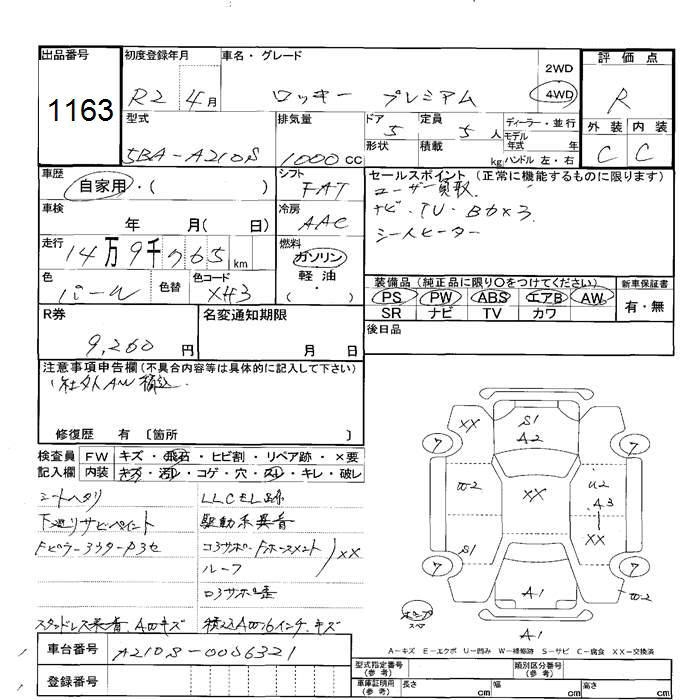 出品番号 初度登録年月 車名・グレード 評価点
1163
R2 4月 ロッキー プレミアム 2WD 4WD R
型式 排気量 ドア 5 定員 5人 ディーラー・並行 外装 内装
形状 積載 kg モデル年式 年 ハンドル 左・右
5BA-A210S 1000cc C C
車歴 自家用・( ) シフト FAT
セールスポイント(正常に機能するものに限ります)
ユーザー買取
ナビ・TV・Bカメラ
シートヒーター
車検 年 月( 日) 冷房 AAC
走行 14万9千765km 燃料 ガソリン 軽・油 ( )
色 パール 色替 色コード XH3
装備品(純正品に限り〇をつけてください) 新車保証書
PS PW ABS エアB AW
SR ナビ TV カワ 有・無
R券 9,260円 名変通知期限 月 日
後日品
注意事項申告欄(不具合内容等は具体的に記入して下さい)
社外AW 積込
修復歴 有〔箇所 〕
検査員記入欄 FW キズ・飛石・ヒビ割・リペア跡・×要
内装 キズ・汚レ・コゲ・穴・スレ・キレ・破レ
シートヘタリ LLCEL跡
下廻りサビペイント 駆動系異音
コアサポ・Fホースメント XX
ルーフ
スタッドレス装着、AWキズ 積込AW16インチ、キズ
XX S1 A2
7 7
W-2 XX U2 A3
XX
S1
7 7
A1 W-2
スペア A1
A−キズ E−エクボ U−凹み W−補修跡 S−サビ C−腐食 XX−交換済
車台番号 A210S-0056321
登録番号
型式指定番号(参考) 類別区分番号(参考)
車庫証明用(参考) 長さ cm 幅 cm 高さ cm